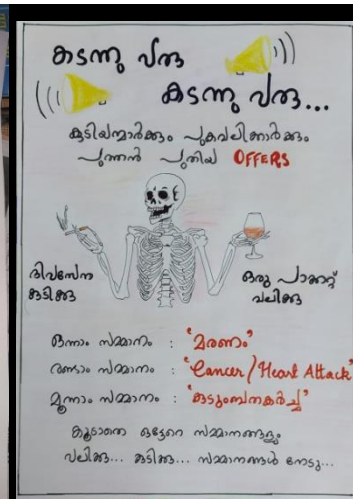 കടന്നു വരൂ
കടന്നു വരൂ...
കുടിയന്മാർക്കും പുകവലിക്കാർക്കും
പുത്തൻ പുതിയ OFFERS
ദിവസേന
കുടിക്കൂ
ഒരു പാക്കറ്റ്
വലിക്കൂ
ഒന്നാം സമ്മാനം : "മരണം"
രണ്ടാം സമ്മാനം : "Cancer/Heart Attack"
മൂന്നാം സമ്മാനം : "കുടുംബതകർച്ച"
കൂടാതെ ഒട്ടേറെ സമ്മാനങ്ങളും
വലിക്കൂ... കുടിക്കൂ... സമ്മാനങ്ങൾ നേടൂ...